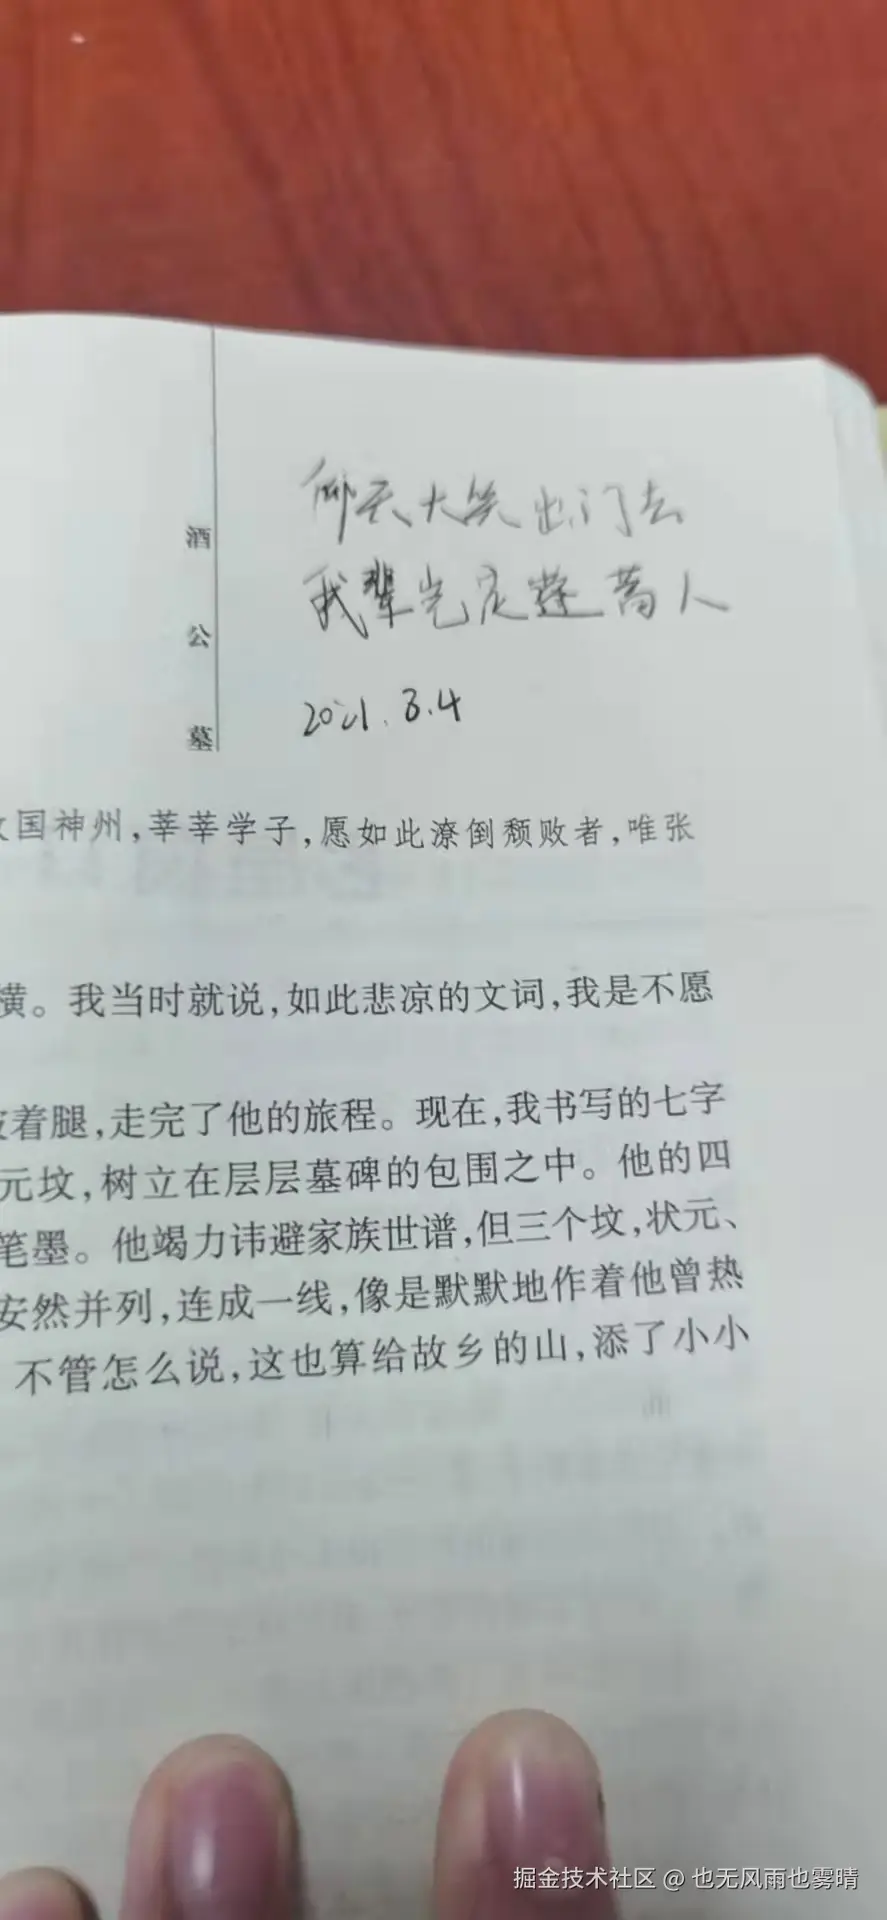 仰天大笑出门去
我辈岂是蓬蒿人
2021.3.4
酒公墓
国神州,莘莘学子,愿如此潦倒颓败者,唯张
横。我当时就说,如此悲凉的文词,我是不愿
着腿,走完了他的旅程。现在,我书写的七字
元坟,树立在层层墓碑的包围之中。他的四
笔墨。他竭力讳避家族世谱,但三个坟,状元、
安然并列,连成一线,像是默默地作着他曾热
不管怎么说,这也算给故乡的山,添了小小
掘金技术社区 @ 也无风雨也雾晴